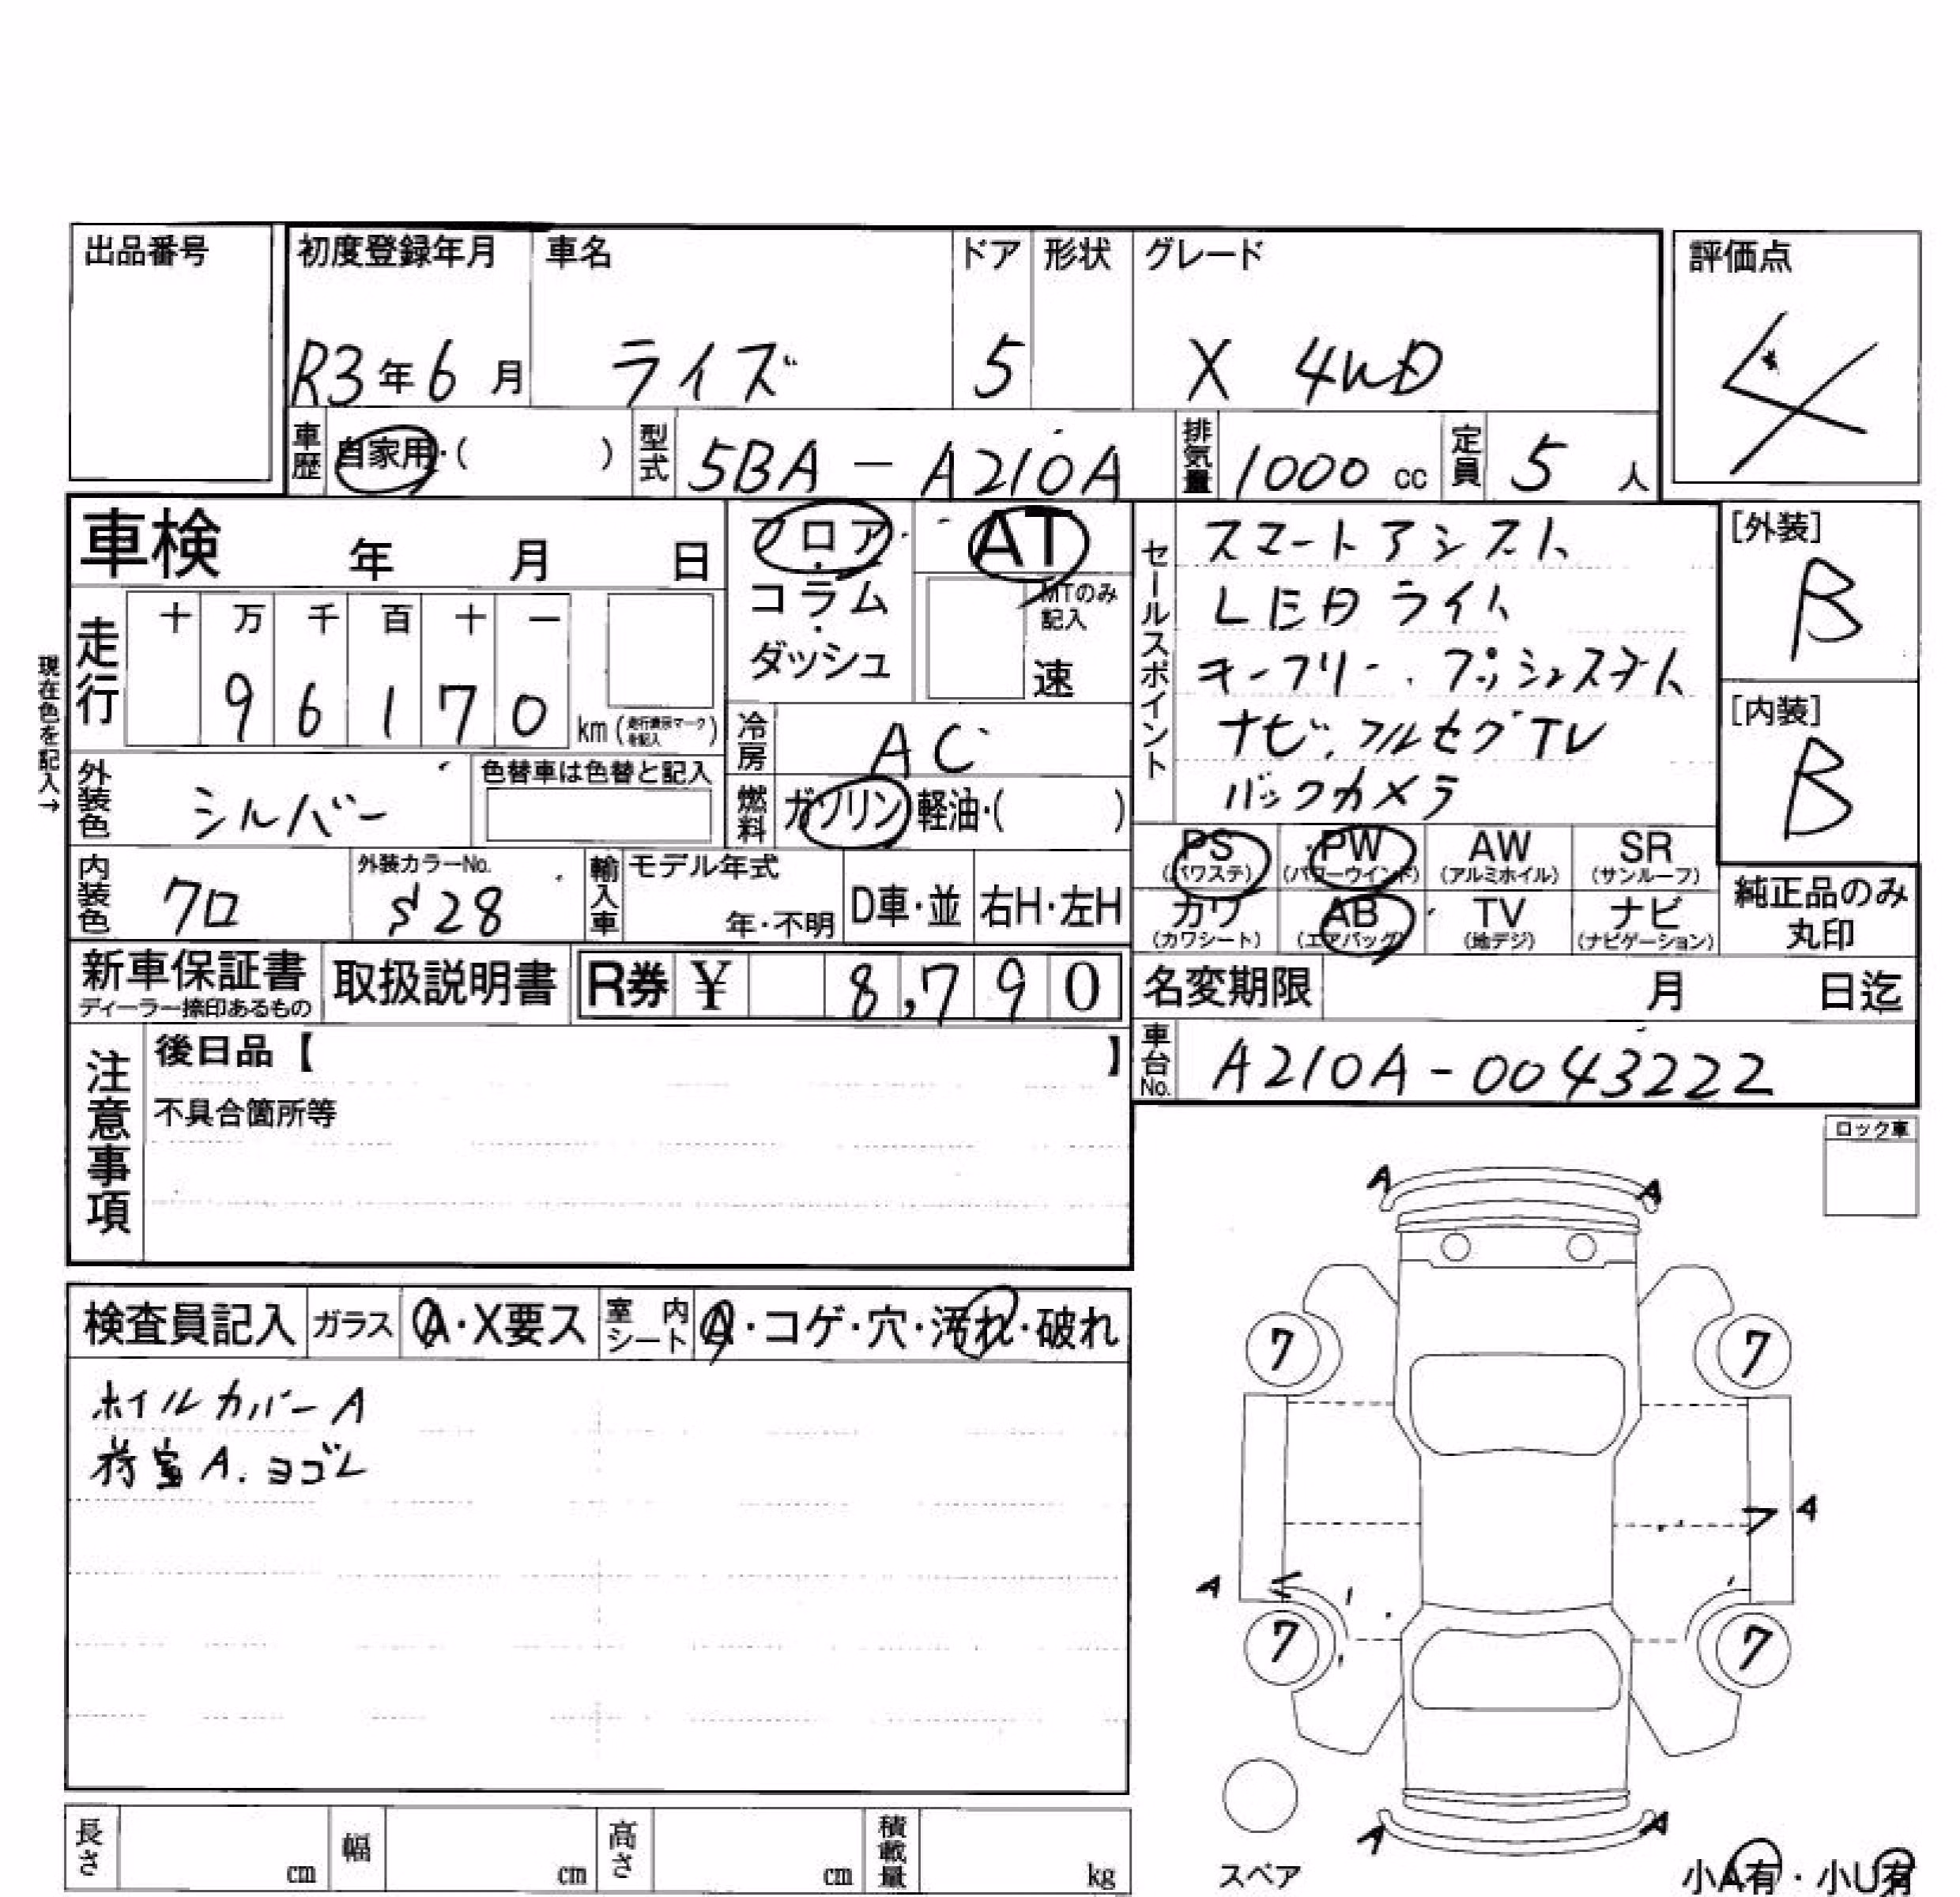 出品番号
初度登録年月 車名 ドア 形状 グレード 評価点
R3年6月 ライズ 5 X 4WD 4
車歴 自家用・( ) 型式 5BA-A210A 排気量 1000 cc 定員 5 人
車検 年 月 日
フロア・コラム・ダッシュ
AT
MTのみ記入
速
走行 十 万 千 百 十 一
9 6 1 7 0 km(走行表示マークを記入)
現在色を記入→
冷房 AC
外装色 シルバー 色替車は色替と記入
燃料 ガソリン 軽油・( )
内装色 クロ 外装カラーNo. S28 輸入車 モデル年式 年・不明 D車・並 右H・左H
セールスポイント
スマートアシスト
LEDライト
キーフリー.プッシュスタート
ナビ.フルセグTV
バックカメラ
[外装]
B
[内装]
B
PS(パワステ) PW(パワーウインド) AW(アルミホイル) SR(サンルーフ)
カワ(カワシート) AB(エアバッグ) TV(地デジ) ナビ(ナビゲーション)
純正品のみ丸印
新車保証書 ディーラー捺印あるもの 取扱説明書 R券 ¥ 8,790
名変期限 月 日迄
車台No. A210A-0043222
注意事項
後日品【 】
不具合箇所等
ロック車
検査員記入 ガラス A・X要ス 室内シート A・コゲ・穴・汚れ・破れ
ホイルカバーA
荷室A.ヨゴレ
A A
7 7
A
A
7 7
A A
スペア
小A有・小U有
長さ cm 幅 cm 高さ cm 積載量 kg